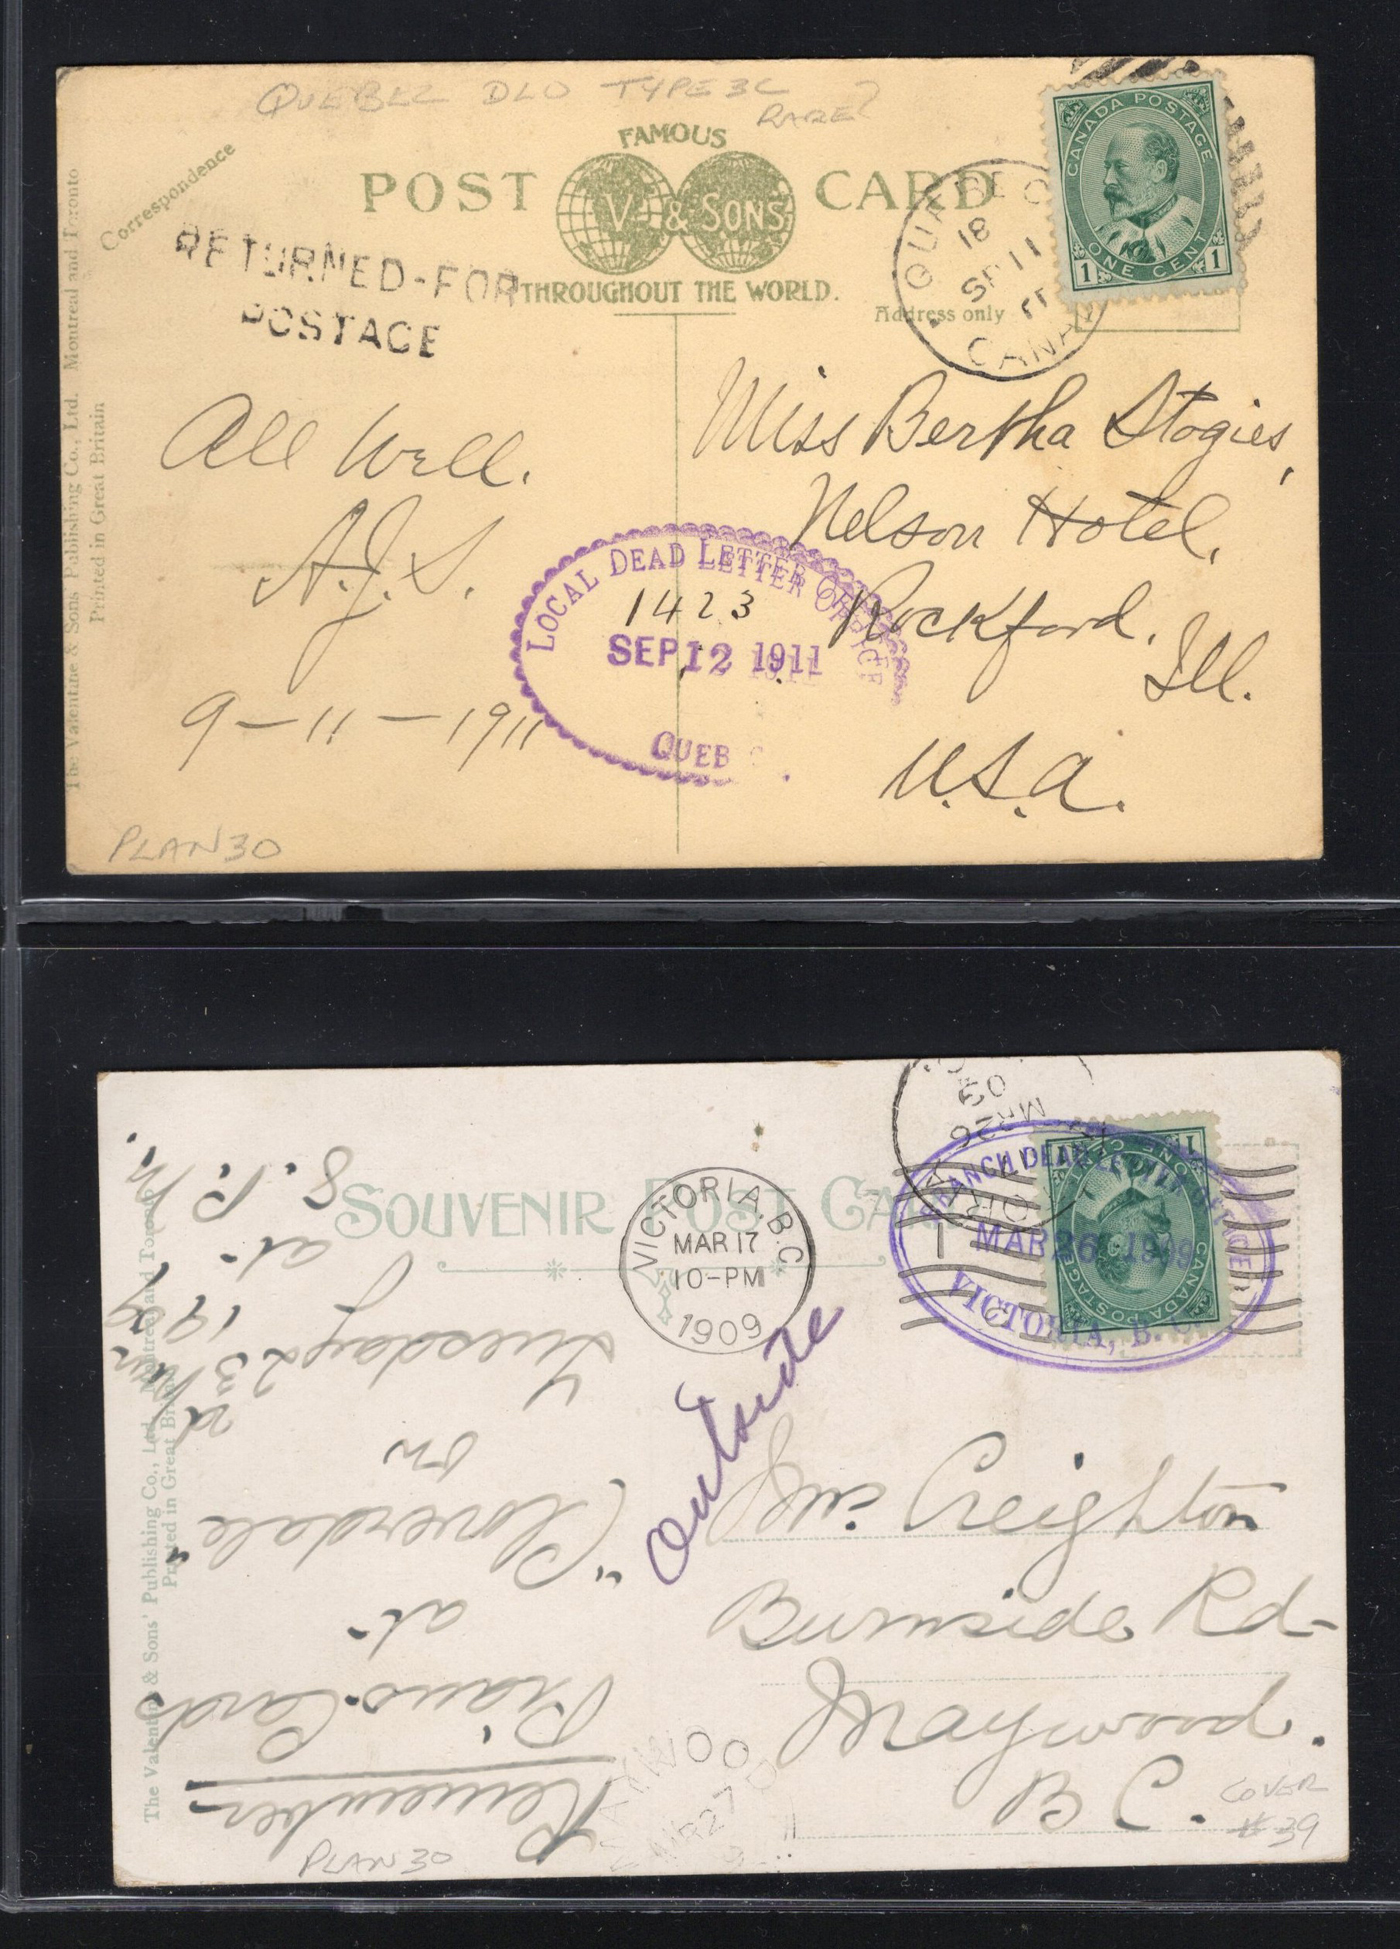 QUEBEC DLO TYPE 3C
RARE?
FAMOUS
POST CARD
V. & SONS
THROUGHOUT THE WORLD.
Correspondence
Address only
RETURNED-FOR
POSTAGE
QUEBEC
18
SP 11
11
CANADA
CANADA POSTAGE
1 ONE CENT 1
The Valentine & Sons Publishing Co., Ltd. Montreal and Toronto
Printed in Great Britain
All Well.
A.J.S.
9-11-1911
Miss Bertha Stogies,
Nelson Hotel,
Rockford,
Ill.
U.S.A.
LOCAL DEAD LETTER OFFICE
1423
SEP 12 1911
QUEB
PLAN 30
SOUVENIR POST CARD
VICTORIA, B.C.
MAR 17
10-PM
1909
MR 26
09
BRANCH DEAD LETTER OFFICE
MAR 26 1909
VICTORIA, B.C.
CANADA POSTAGE
ONE CENT
outside
Creighton
Burnside Rd-
Maywood.
B C.
Remember
Piano Cards
at
"Cloverdale"
on
Tuesday 23rd
Mar 1909
at
8. P. M.
The Valentine & Sons' Publishing Co., Ltd. Montreal and Toronto
Printed in Great Britain
MAYWOOD
MR 27
PLAN 30
COVER
# 39